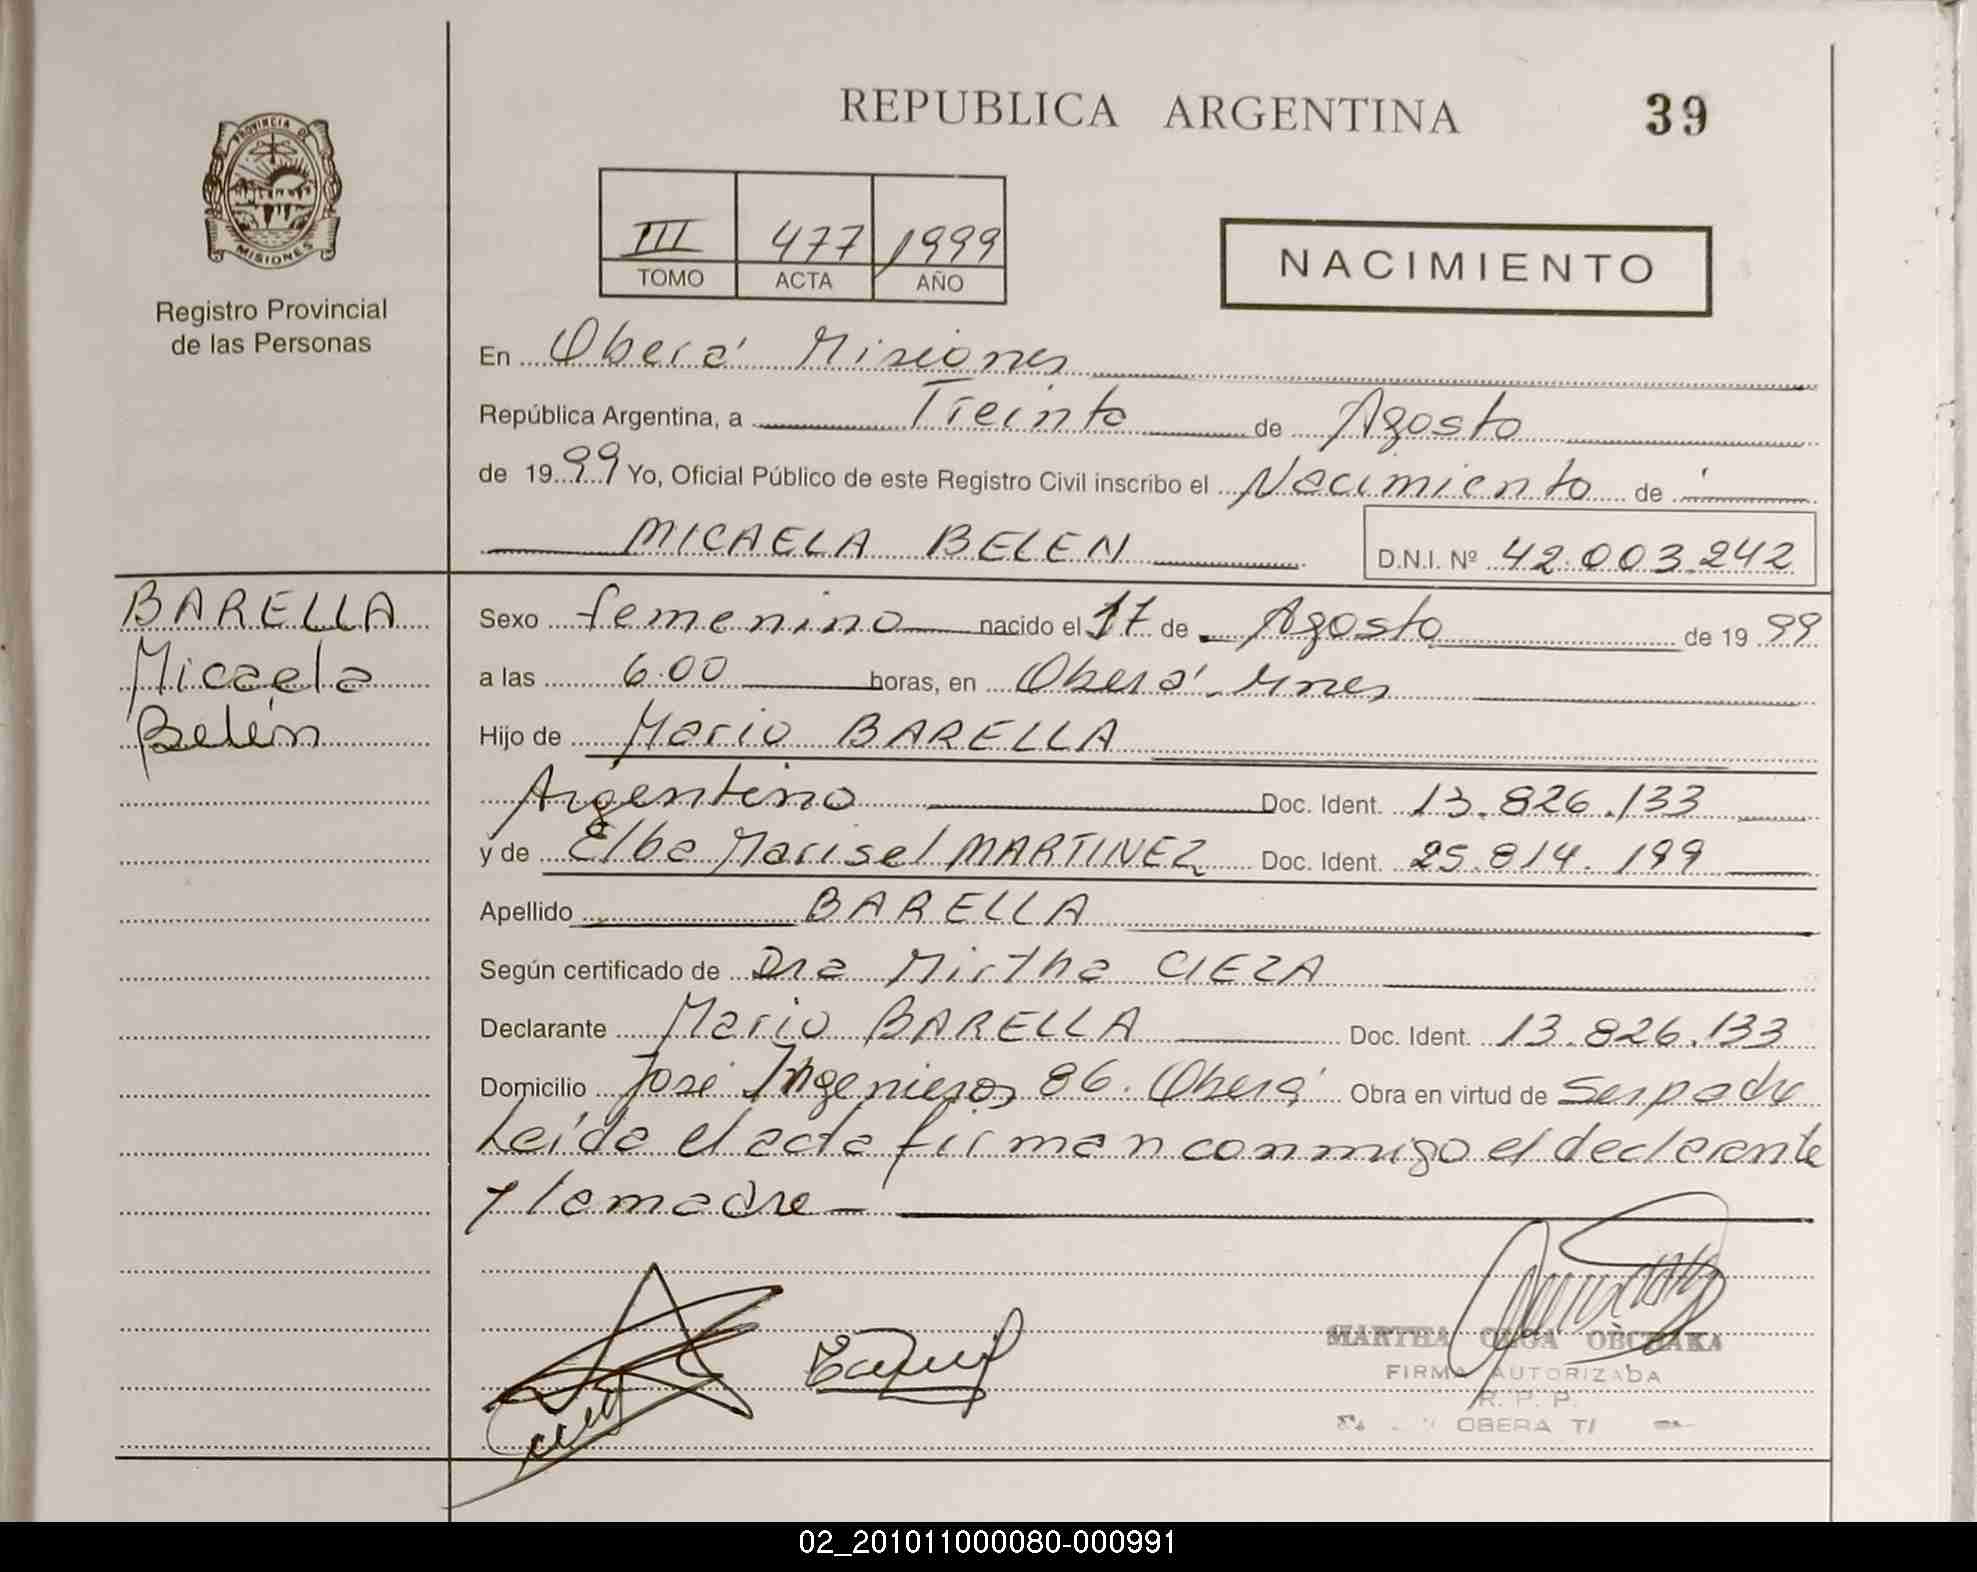 REPUBLICA ARGENTINA
39
PROVINCIA DE
MISIONES
Registro Provincial
de las Personas
III 477 1999
TOMO ACTA AÑO
NACIMIENTO
En Oberá Misiones
República Argentina, a Treinta de Agosto
de 1999 Yo, Oficial Público de este Registro Civil inscribo el Nacimiento de
MICAELA BELEN D.N.I. Nº 42.003.242
BARELLA
Micaela
Belén
Sexo femenino nacido el 17 de Agosto de 19 99
a las 6.00 horas, en Oberá. Mnes
Hijo de Mario BARELLA
Argentino Doc. Ident. 13.826.133
y de Elba Marisel MARTINEZ Doc. Ident. 25.814.199
Apellido BARELLA
Según certificado de Dra Mirtha CIEZA
Declarante Mario BARELLA Doc. Ident. 13.826.133
Domicilio José Ingenieros 86. Oberá Obra en virtud de Ser padre
Leída el acta firman conmigo el declarante
y la madre
MARTHA OLGA
FIRMA AUTORIZADA
R. P. P.
OBERA
02_201011000080-000991